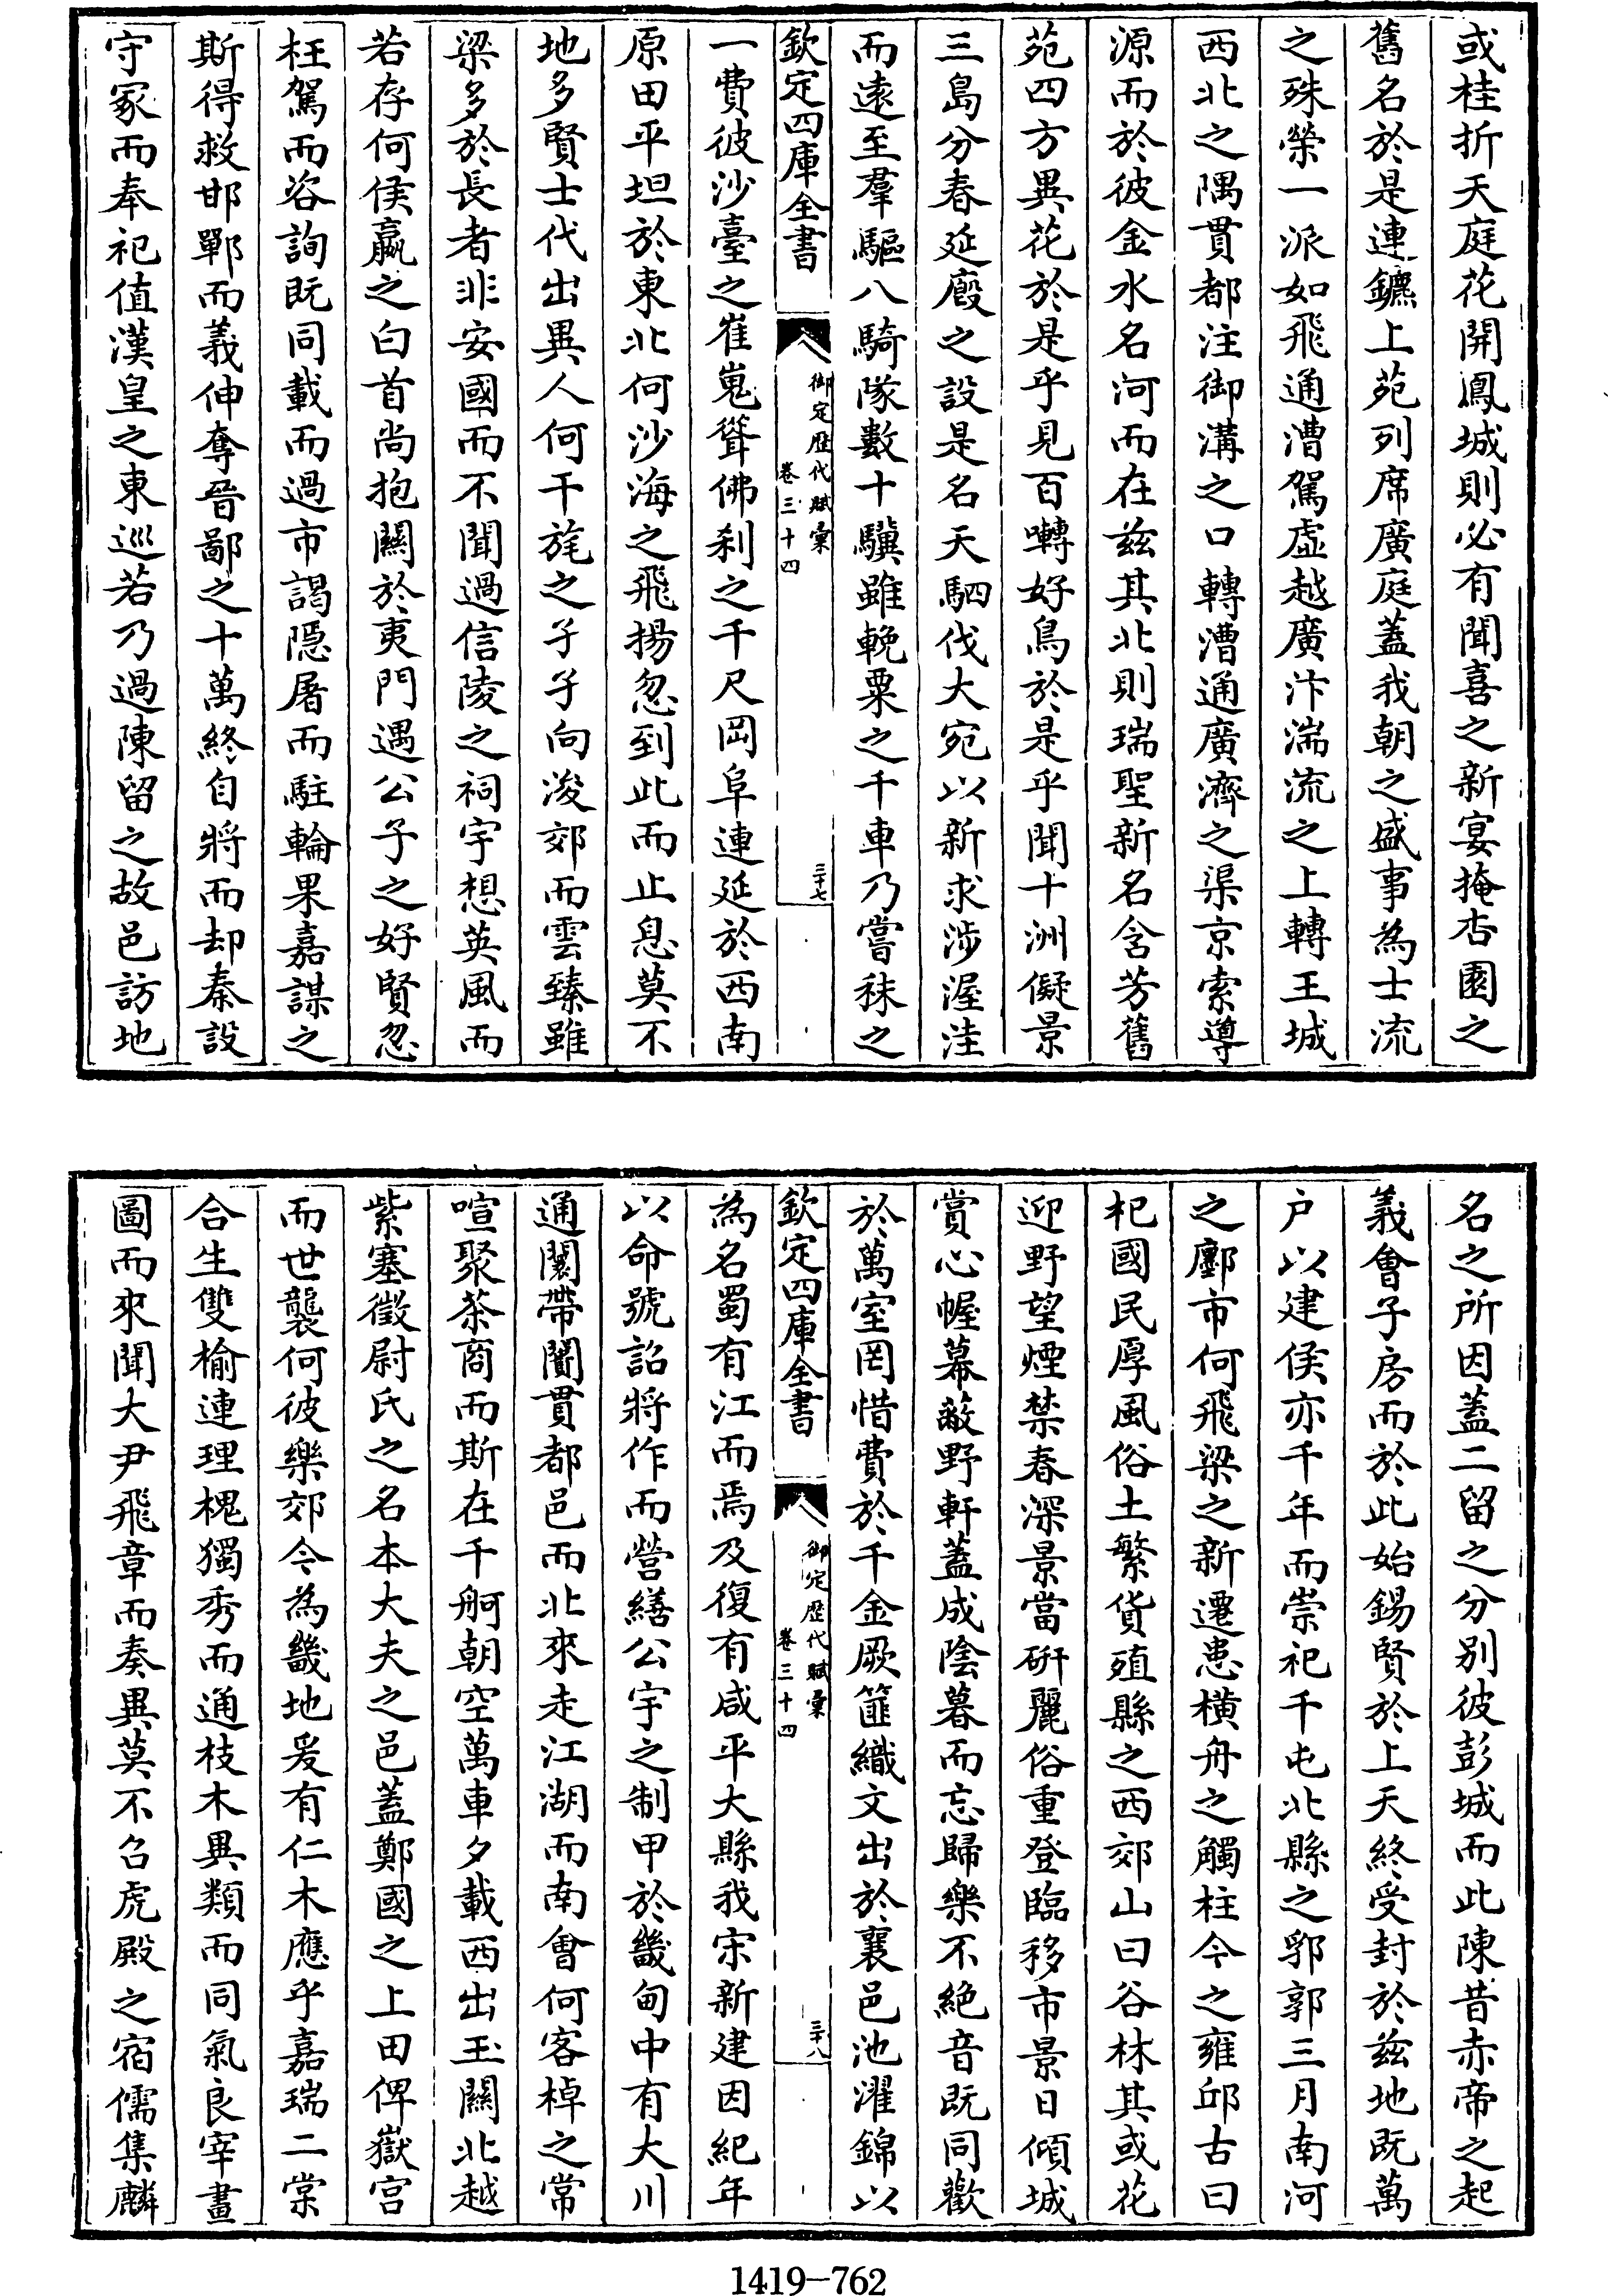 或桂折天庭花開鳳城則必有聞喜之新宴掩杏園之
舊名於是連鑣上苑列席廣庭蓋我朝之盛事為士流
之殊榮一派如飛通漕駕虛越廣汴湍流之上轉王城
西北之隅貫都注御溝之口轉漕通廣濟之渠京索導
源而於彼金水名河而在兹其北則瑞聖新名含芳舊
苑四方異花於是乎見百囀好鳥於是乎聞十洲儗景
三島分春延廏之設是名天駟伐大宛以新求涉渥洼
而遠至羣驅八騎隊數十驥雖輓粟之千車乃嘗秣之
欽定四庫全書
御定歴代賦彙
卷三十四
三十七
一費彼沙臺之崔嵬聳佛刹之千尺岡阜連延於西南
原田平坦於東北何沙海之飛揚忽到此而止息莫不
地多賢士代出異人何干旄之孑孑向浚郊而雲臻雖
梁多於長者非安國而不聞過信陵之祠宇想英風而
若存何侯嬴之白首尚抱關於夷門遇公子之好賢忽
枉駕而咨詢既同載而過市謁隠屠而駐輪果嘉謀之
斯得救邯鄲而義伸奪晉鄙之十萬終自將而却秦設
守冡而奉祀值漢皇之東巡若乃過陳留之故邑訪地
名之所因蓋二留之分别彼彭城而此陳昔赤帝之起
義會子房而於此始錫賢於上天終受封於兹地既萬
户以建侯亦千年而崇祀千屯北縣之郛郭三月南河
之鄽市何飛梁之新遷患横舟之觸柱今之雍邱古曰
杞國民厚風俗土繁貨殖縣之西郊山曰谷林其或花
迎野望煙禁春深景當研麗俗重登臨移市景日傾城
賞心幄幕蔽野軒蓋成陰暮而忘歸樂不絶音既同歡
於萬室罔惜費於千金厥篚織文出於襄邑池濯錦以
欽定四庫全書
御定歴代賦彙
卷三十四
三十八
為名蜀有江而焉及復有咸平大縣我宋新建因紀年
以命號詔將作而營繕公宇之制甲於畿甸中有大川
通闤帶闠貫都邑而北來走江湖而南會何客棹之常
喧聚茶商而斯在千舸朝空萬車夕載西出玉關北越
紫塞徵尉氏之名本大夫之邑蓋鄭國之上田俾嶽宫
而世襲何彼樂郊今為畿地爰有仁木應乎嘉瑞二棠
合生雙榆連理槐獨秀而通枝木異類而同氣良宰畫
圖而來聞大尹飛章而奏異莫不召虎殿之宿儒集麟
1419-762